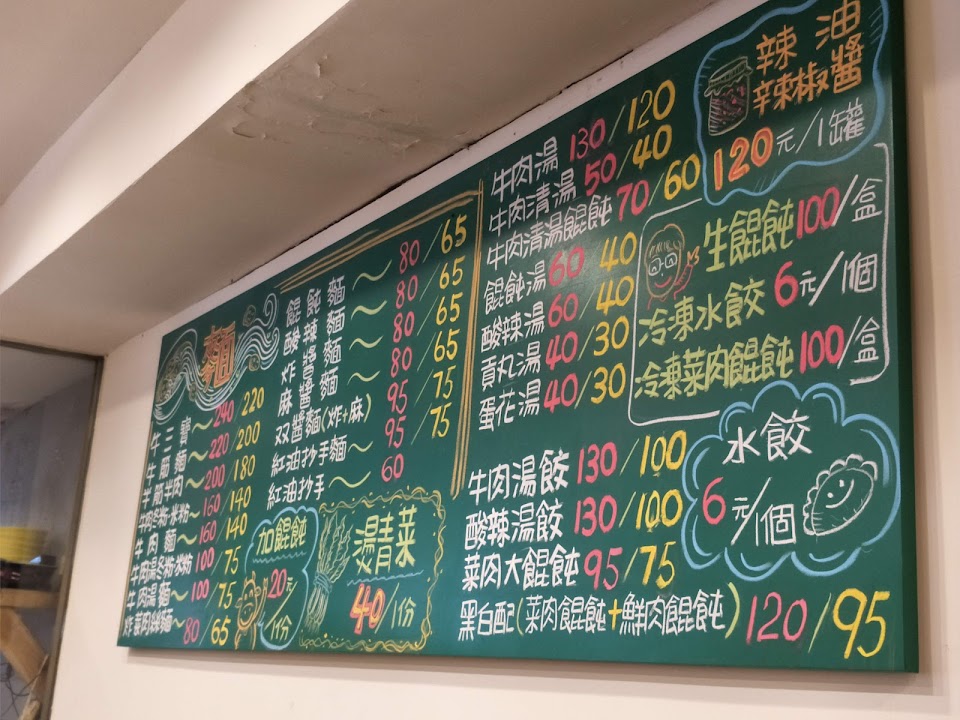 麵
牛三寶～240/220
牛筋麵～220/200
半筋半肉～200/180
牛肉冬粉·米粉～160/140
牛肉麵～160/140
牛肉湯冬粉·米粉 100/75
牛肉湯麵～100/75
炸醬肉絲麵～80/65
餛飩麵～80/65
酸辣麵～80/65
炸醬麵～80/65
麻醬麵～80/65
双醬麵(炸+麻)～95/75
紅油抄手麵～95/75
紅油抄手～60
加餛飩
20元/份
燙青菜
40/份
牛肉湯130/120
牛肉清湯50/40
牛肉清湯餛飩70/60
餛飩湯60/40
酸辣湯60/40
貢丸湯40/30
蛋花湯40/30
牛肉湯餃130/100
酸辣湯餃130/100
菜肉大餛飩95/75
黑白配(菜肉餛飩+鮮肉餛飩)120/95
辣油
辣椒醬
120元/1罐
生餛飩100/盒
冷凍水餃6元/1個
冷凍菜肉餛飩100/盒
水餃
6元/個